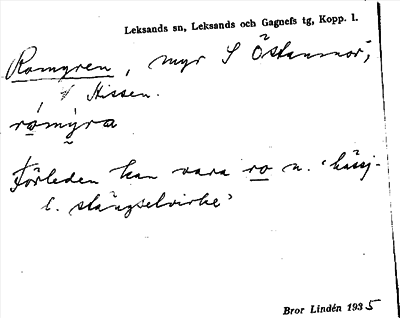 Leksands sn, Leksands och Gagnefs tg, Kopp. l.
Romyren, myr S Östanmor,
V Hissen.
romýra
Förleden kan vara ro n. 'hässj-
l. stängselvirke'
Bror Lindén 1935